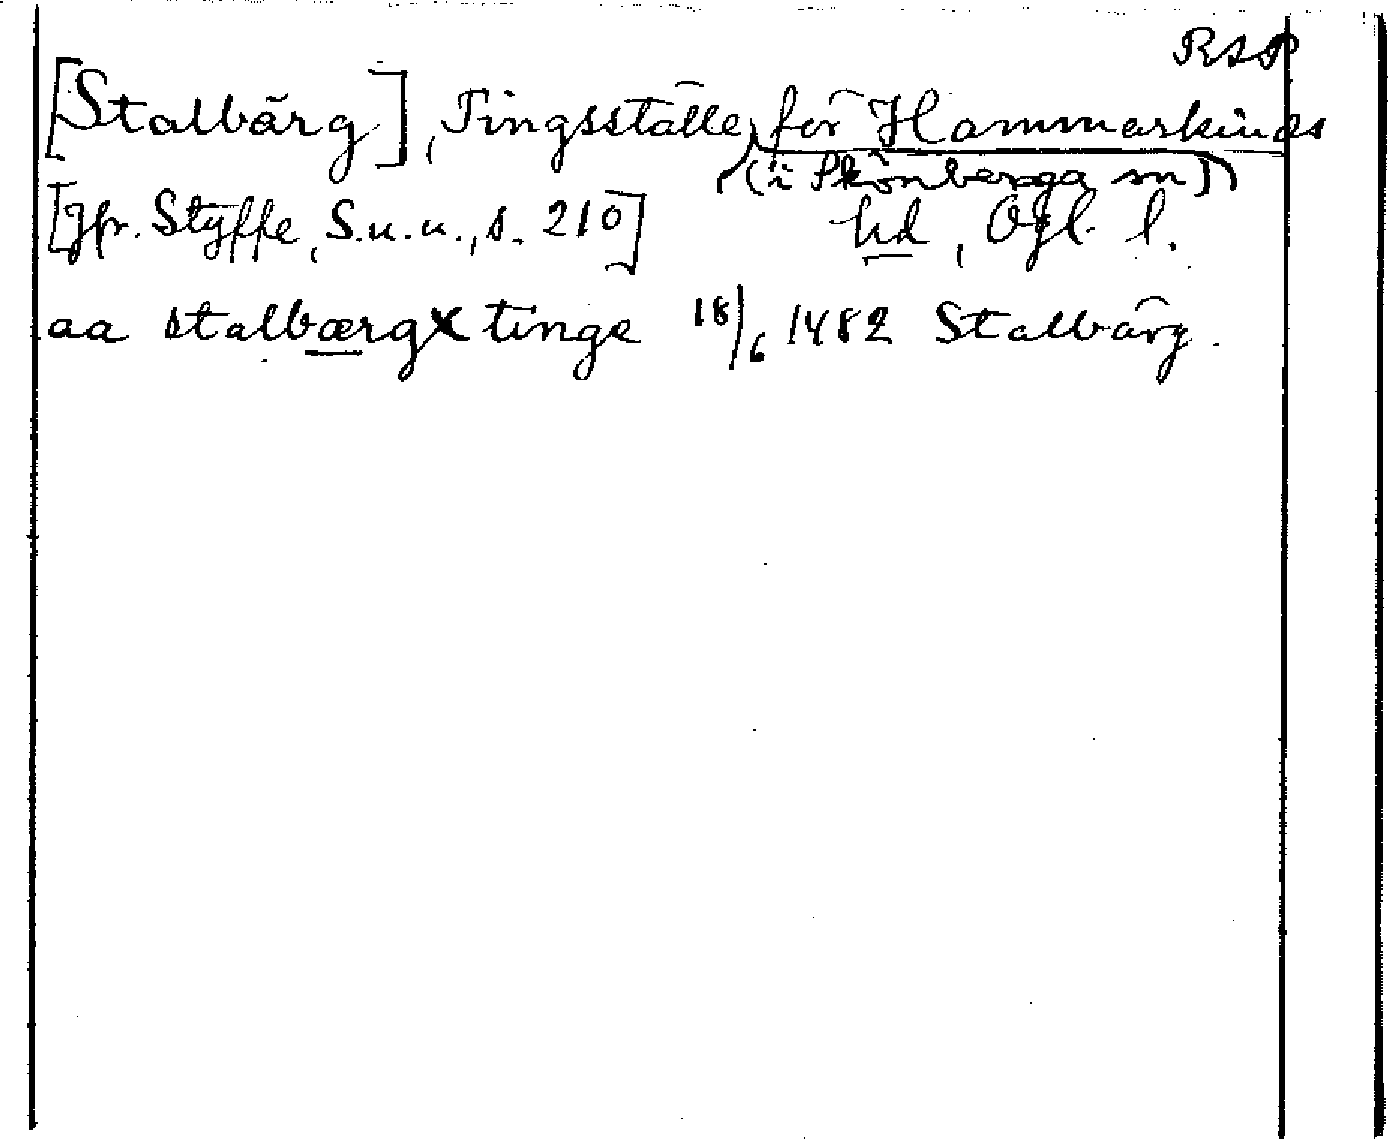 RAP
[Stalbärg], Tingsställe för Hammarkinds
(i Skönberga sn)
[Jfr. Styffe, S.u.u., s. 210] hd, Ögl. l.
aa stalbærgx tinge 18/6 1482 Stalbärg.